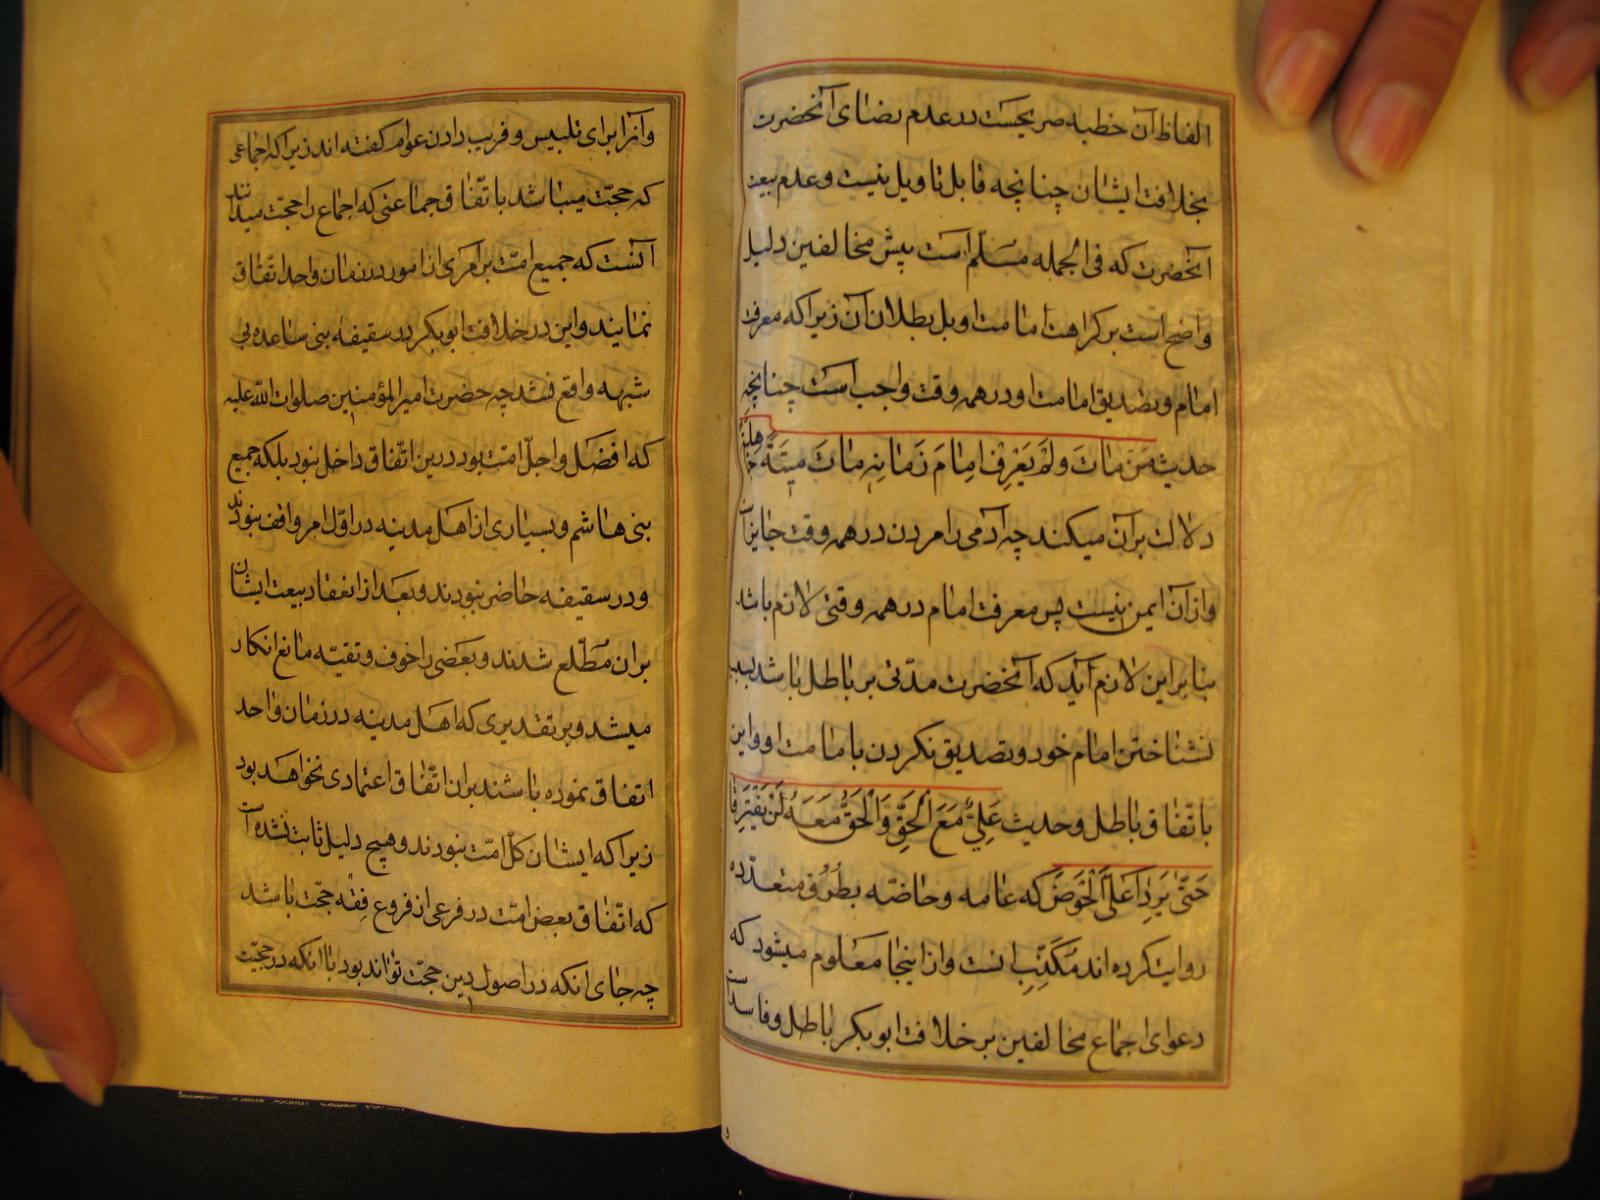 الفاظ آن خطبه صریحست در عدم رضای آنحضرت
بخلافت ایشان چنانچه قابل تاویل نیست و عدم بیعت
آنحضرت که فی الجمله مسلّم است پیش مخالفین دلیل
واضح است بر کراهت امامت او بل بطلان آن زیرا که معرفت
امام و تصدیق امامت او در همه وقت واجب است چنانچه
حدیث مَنْ مٰاتَ وَلَمْ یَعْرِفْ اِمٰامَ زَمٰانِهِ مٰاتَ مِیتَةً جٰاهِلِیَّةً
دلالت بر آن میکند چه آدمی را مردن در همه وقت جایز است
و از آن ایمن نیست پس معرفت امام در همه وقتی لازم باشد
بنا بر این لازم آید که آنحضرت مدّتی بر باطل باشد بسبب
نشناختن امام خود و تصدیق نکردن بامامت او و این
باتّفاق باطل و حدیث عَلِیٌّ مَعَ الْحَقِّ وَالْحَقُّ مَعَهُ لَنْ یَفْتَرِقٰا
حَتّٰی یَرِدٰا عَلَیَّ الْحَوْضَ که عامه و خاصّه بطُرُق متعدّده
روایت کرده اند مُکَذِّبِ انست و از اینجا معلوم میشود که
دعوای اجماع مخالفین بر خلافت ابوبکر باطل و فاسد است
و آنرا برای تلبیس و فریب دادن عوام گفته اند زیرا که اجماعی
که حجّت میباشد باتّفاق جماعتی که اجماع را حجّت میدانند
آنست که جمیع امّت بر امری از امور در زمان واحد اتّفاق
نمایند و این در خلافت ابوبکر در سقیفه بنی ساعده بی
شبهه واقع نشد چه حضرت امیرالمؤمنین صلوات الله علیه
که افضل و اجلّ امّت بود درین اتّفاق داخل نبود بلکه جمیع
بنی هاشم و بسیاری از اهل مدینه در اوّل امر واقف نبودند
و در سقیفه حاضر نبودند و بعد از انعقاد بیعت ایشان
بران مُطّلع شدند و بعضی را خوف و تقیّه مانع انکار
میشد و بر تقدیری که اهل مدینه در زمان واحد
اتفاق نموده باشند بران اتّفاق اعتمادی نخواهد بود
زیرا که ایشان کلّ امّت نبودند و هیچ دلیل ثابت نشده است
که اتّفاق بعض امّت در فرعی از فروع فِقْه حجّت باشد
چه جای انکه در اصول دین حجّت تواند بود با انکه در حجیّت